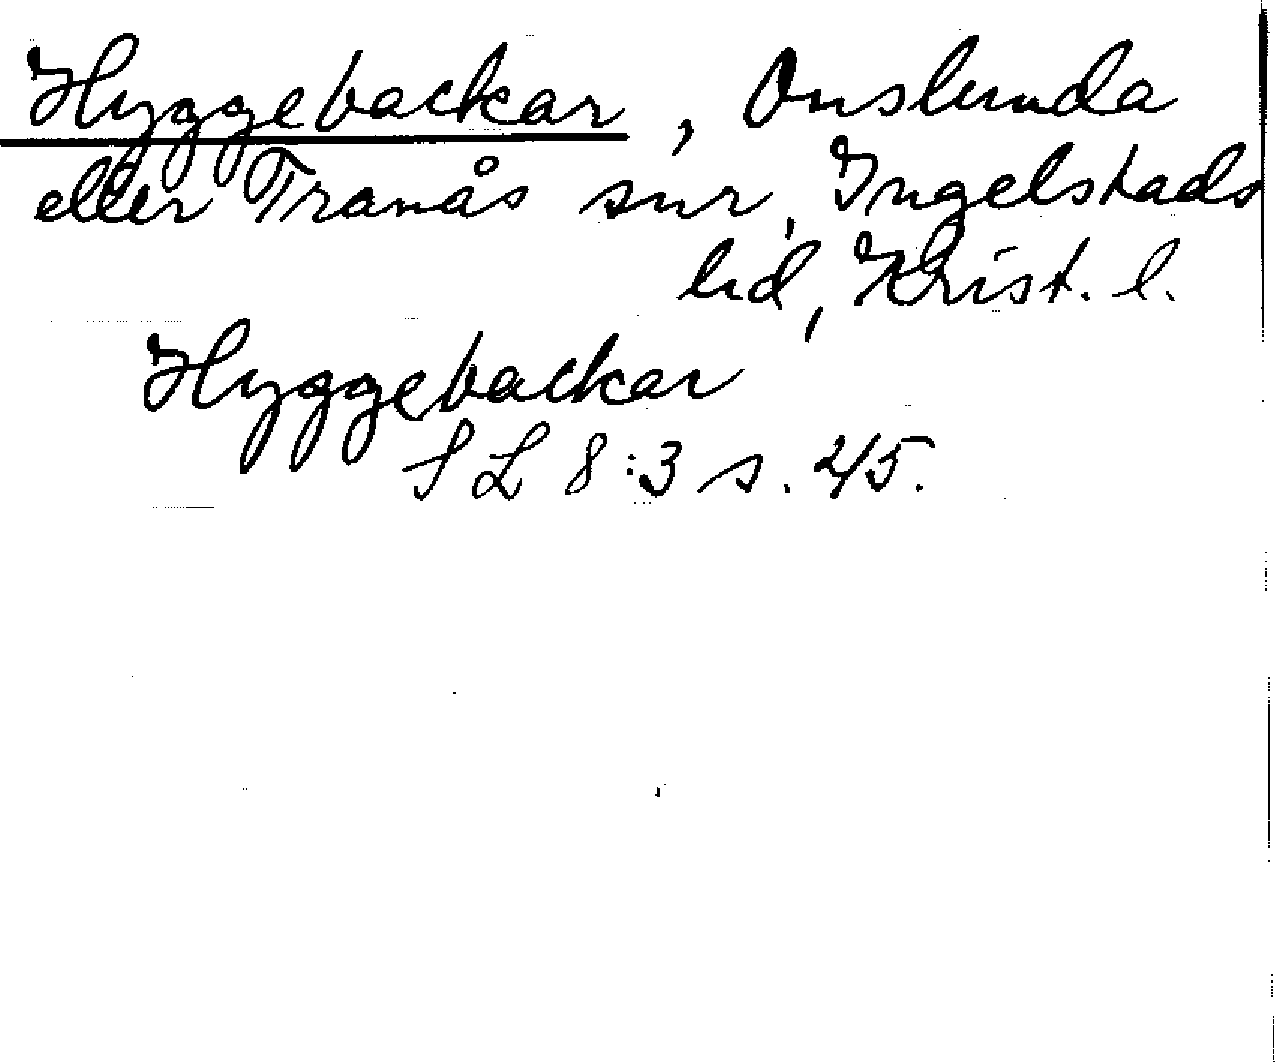 Hyggebackar, Onslunda
eller Tranås snr, Ingelstads
hd, Krist. l.
Hyggebackar
SL 8:3 s. 245.